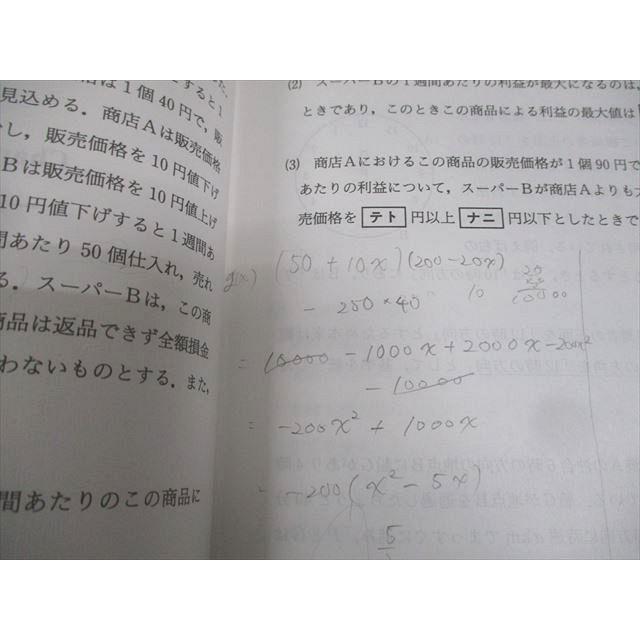 は1個40円で,販
見込める．商店Aは販売価格
し，販売価格を10円値下げ
Bは販売価格を10円値上げ
10円値下げすると1週間あ
間あたり50個仕入れ，売れ
る．スーパーBは，この商
商品は返品できず全額損金
わないものとする．また，
間あたりのこの商品に
(2) スーパーBの1週間あたりの利益が最大になるのは，
ときであり，このときこの商品による利益の最大値は
(3) 商店Aにおけるこの商品の販売価格が1個90円で
あたりの利益について，スーパーBが商店Aよりも大
売価格を テト 円以上 ナニ 円以下としたときで
g(x) (50 + 10x)(200 - 20x)
- 250 × 40
= 10000 - 1000x + 2000x - 200x²
- 10000
= -200x² + 1000x
= -200(x² - 5x)
5